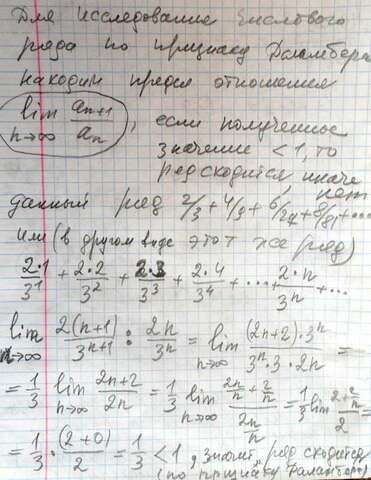 Для исследования числового
ряда по признаку Даламбера
находим предел отношения
lim n→∞ aₙ₊₁/aₙ, если полученное
значение < 1, то
ряд сходится, иначе
нет
данный ряд 2/3 + 4/9 + 6/27 + 8/81 + ...
или (в другом виде этот же ряд)
2·1/3¹ + 2·2/3² + 2·3/3³ + 2·4/3⁴ + ... + 2·n/3ⁿ + ...
lim n→∞ 2(n+1)/3ⁿ⁺¹ : 2n/3ⁿ = lim n→∞ (2n+2)·3ⁿ/(3ⁿ·3·2n) =
= 1/3 lim n→∞ (2n+2)/2n = 1/3 lim n→∞ (2n/n + 2/n)/(2n/n) = 1/3 lim (2+2/n)/2 =
= 1/3 · (2+0)/2 = 1/3 < 1, значит, ряд сходится
(по признаку Даламбера)